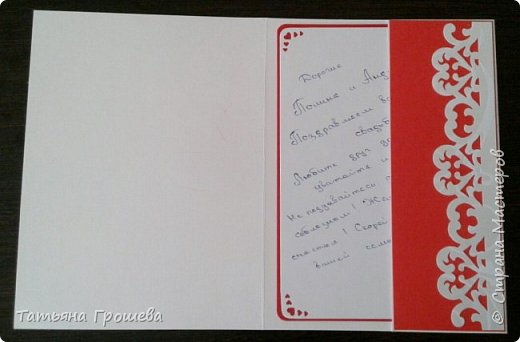 Дорогие
Полина и Анд
Поздравляем ва
свадьб
Любите друг др
уважайте и
Не поддавайтесь
соблазнам! Жел
счастья! Скорей
вашей семь
Татьяна Грошева
© Страна Мастеров